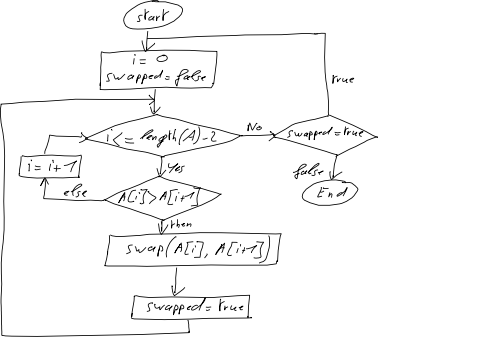 start
i = 0
swapped = false
true
i <= length(A)-2
No
swapped = true
i = i+1
Yes
false
else
A[i] > A[i+1]
End
then
swap(A[i], A[i+1])
swapped = true